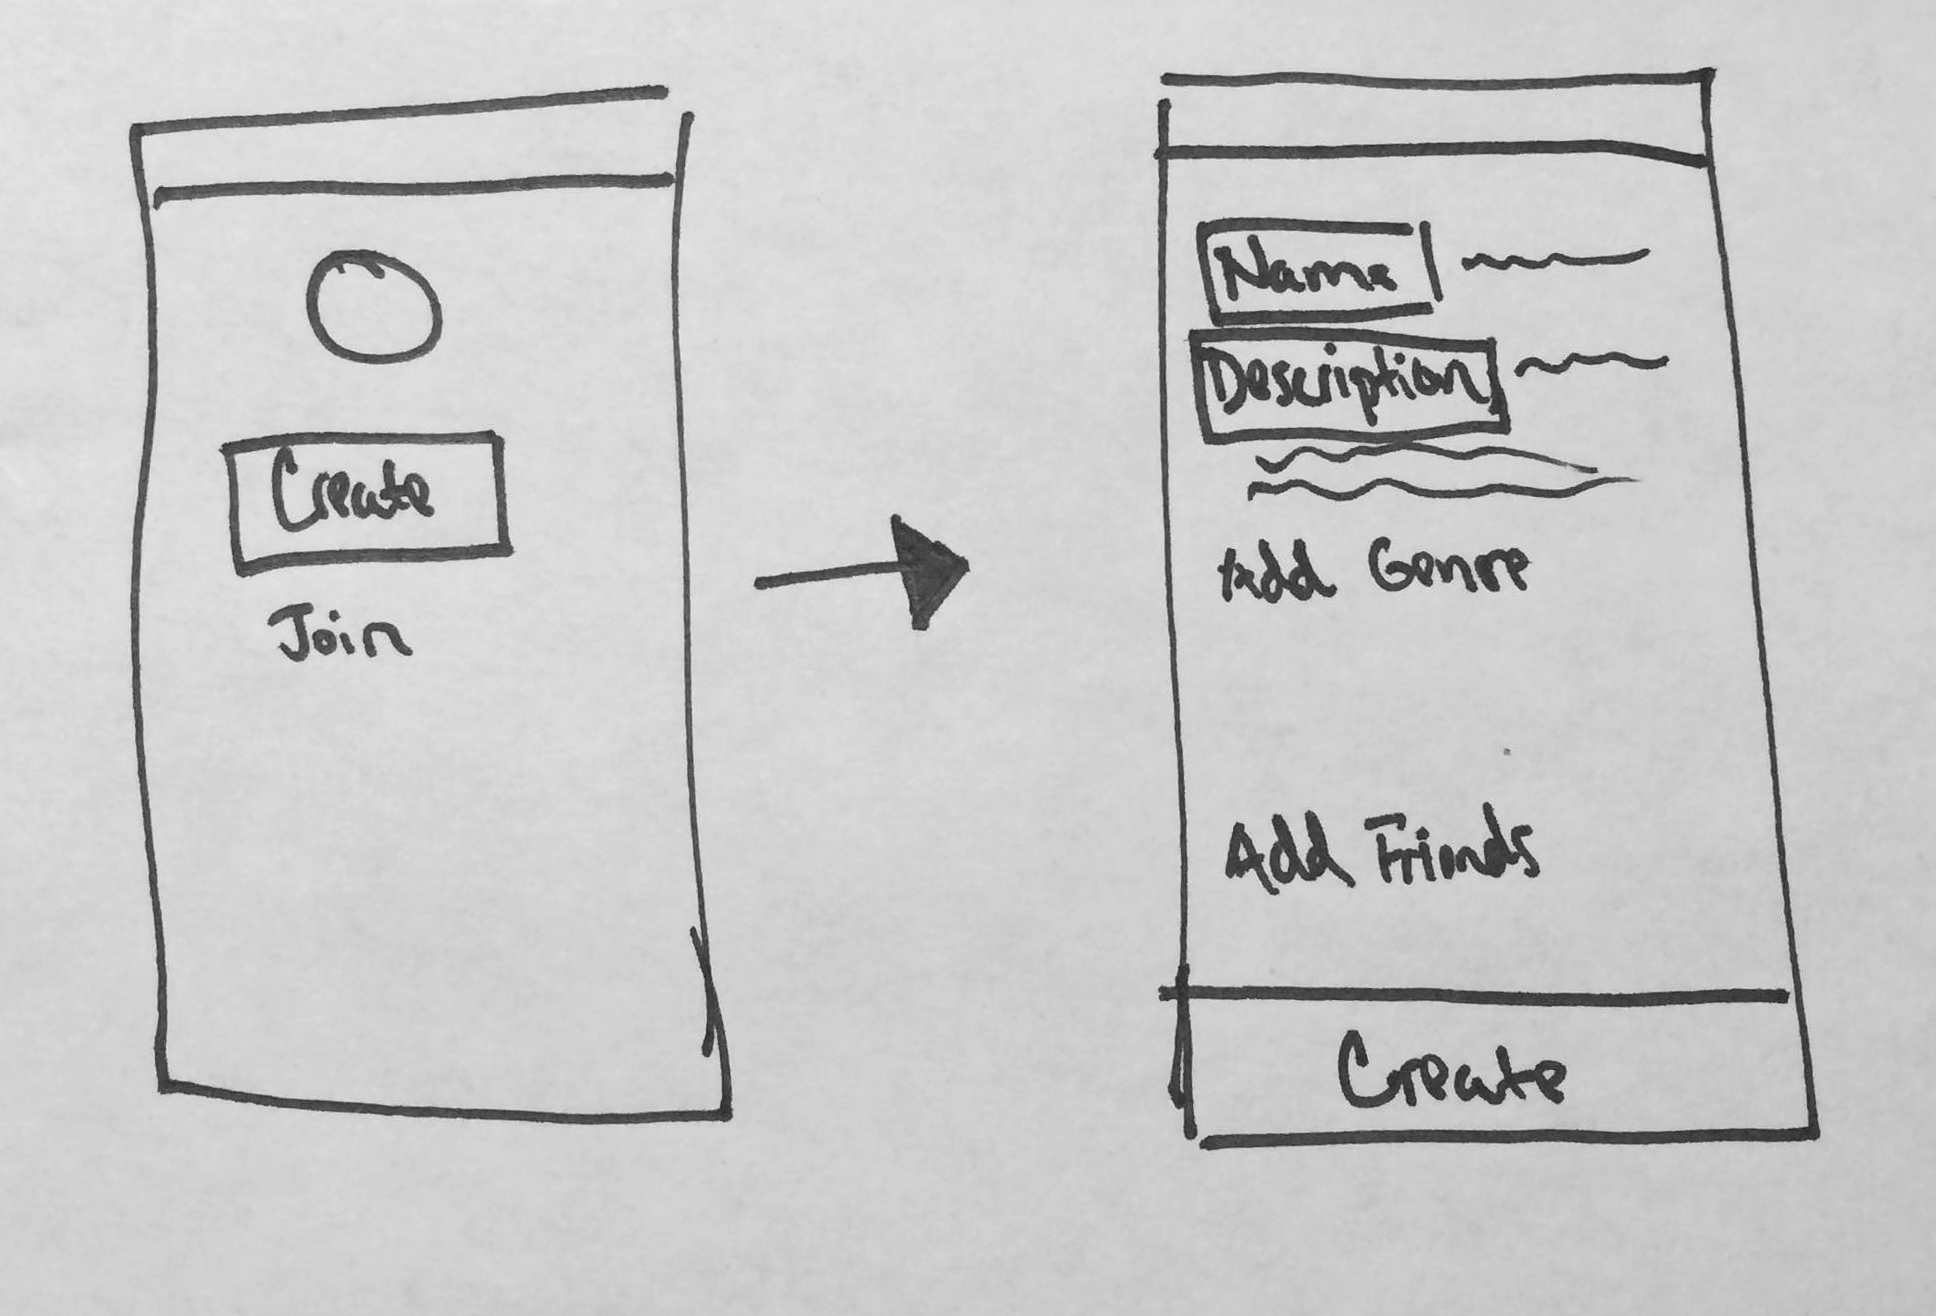 Create
Join
Name
Description
Add Genre
Add Friends
Create